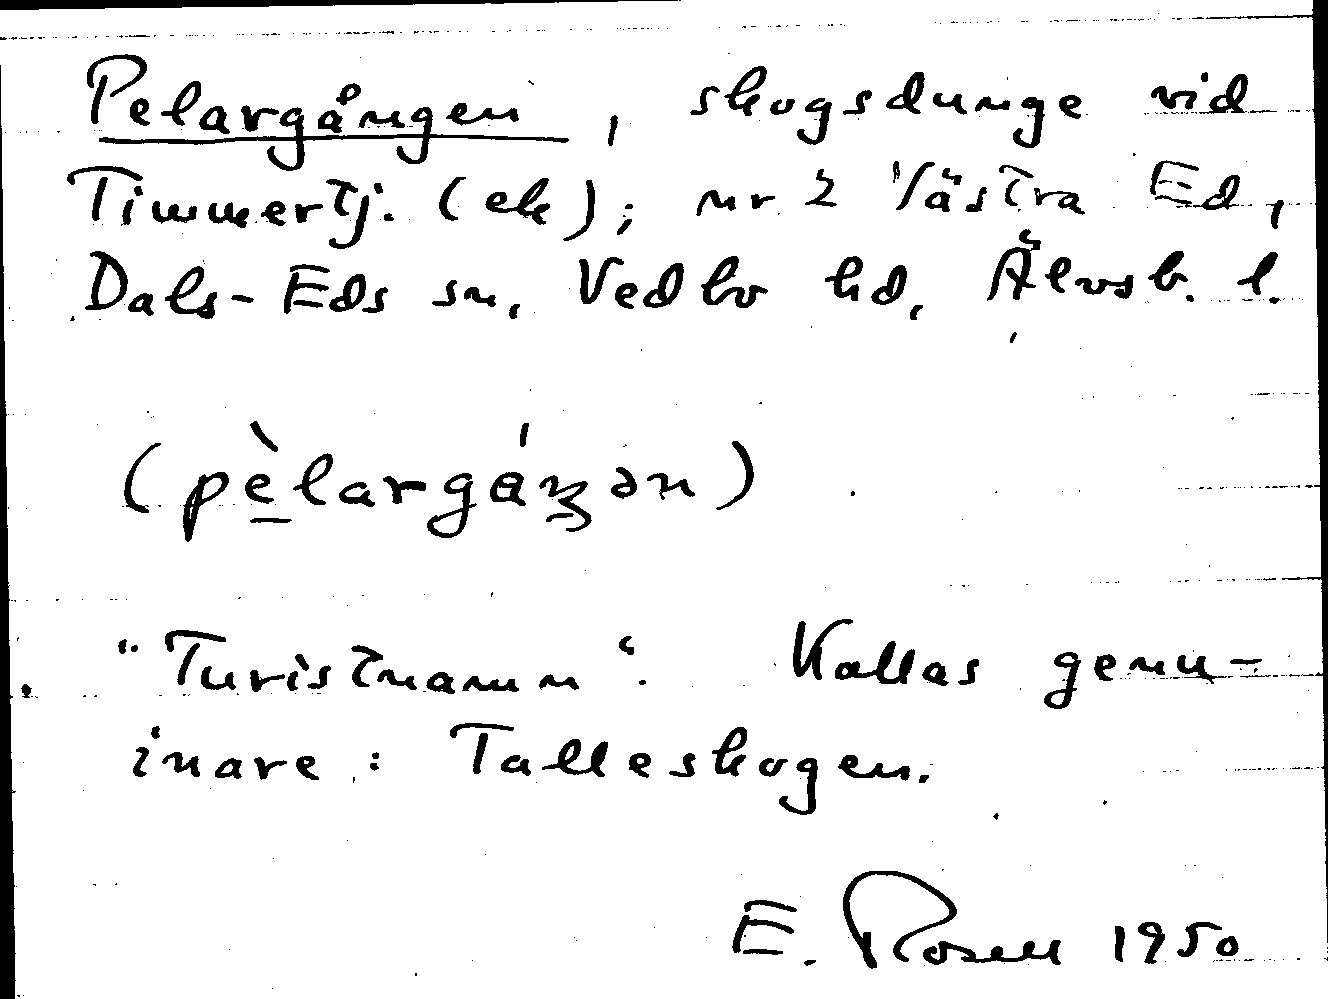 Pelargången, skogsdunge vid
Timmertj. (ek); nr 2 Västra Ed,
Dals-Eds sn, Vedbo hd, Älvsb. l.
(pèlargáŋən)
"Turistnamn". Kallas genu-
inare: Talleskogen.
E. Rosell 1950